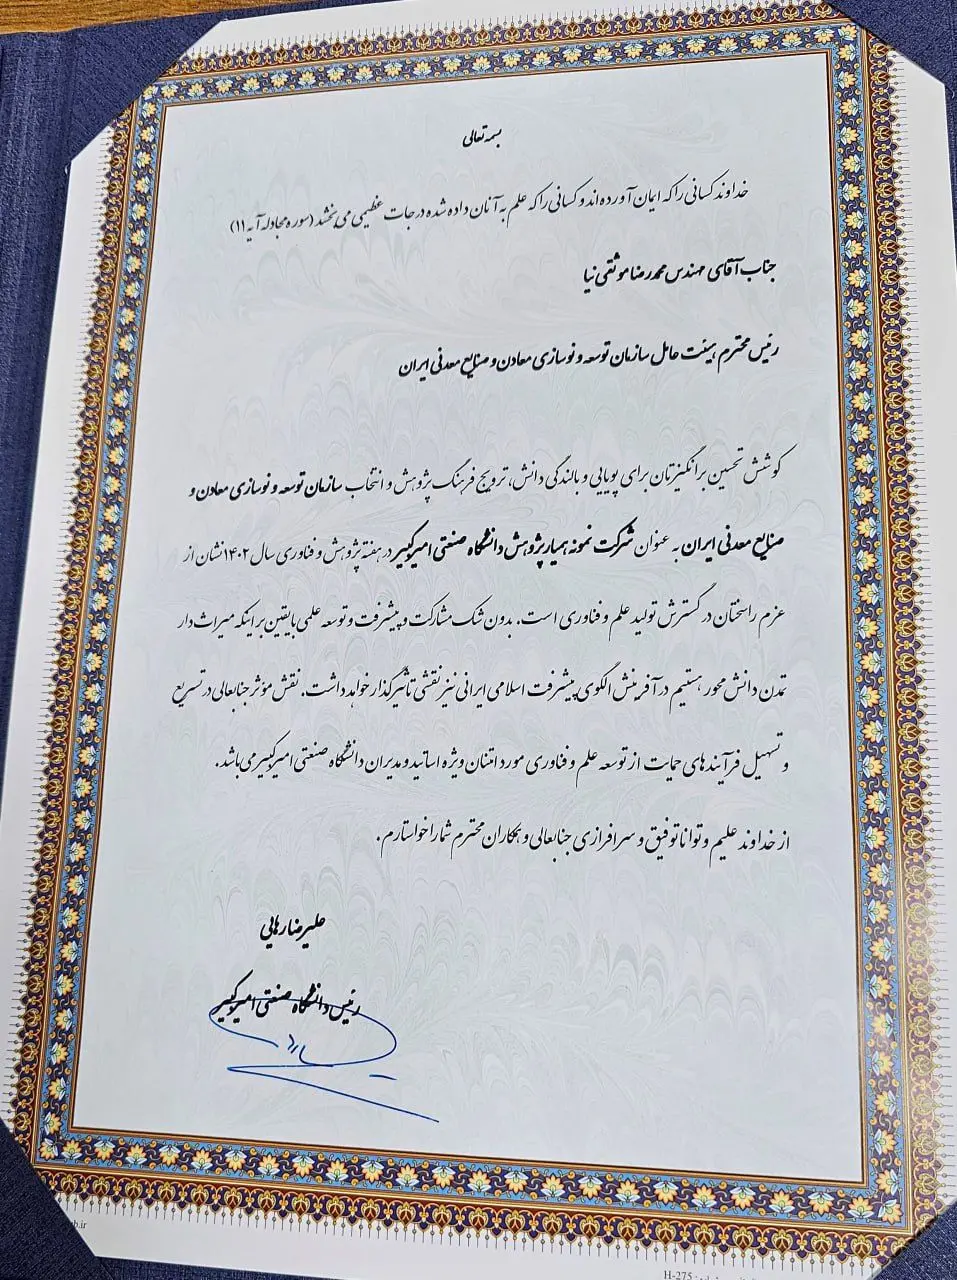 بسمه تعالی
خداوند کسانی را که ایمان آورده‌اند و کسانی را که علم به آنان داده شده درجات عظیمی می‌بخشد (سوره مجادله آیه ۱۱)
جناب آقای مهندس محمدرضا موثقی نیا
رئیس محترم هیئت عامل سازمان توسعه و نوسازی معادن و صنایع معدنی ایران
کوشش تحسین برانگیزتان برای پویایی و بالندگی دانش، ترویج فرهنگ پژوهش و انتخاب سازمان توسعه و نوسازی معادن و
صنایع معدنی ایران به عنوان شرکت نمونه همیار پژوهش دانشگاه صنعتی امیرکبیر در هفته پژوهش و فناوری سال ۱۴۰۲ نشان از
عزم راسختان در گسترش تولید علم و فناوری است. بدون شک مشارکت و پیشرفت و توسعه علمی با یقین بر اینکه میراث دار
تمدن دانش محور هستیم در آفرینش الگوی پیشرفت اسلامی ایرانی نیز نقشی تأثیرگذار خواهد داشت. نقش مؤثر جنابعالی در تسریع
و تسهیل فرآیندهای حمایت از توسعه علم و فناوری مورد امتنان ویژه اساتید و مدیران دانشگاه صنعتی امیرکبیر می‌باشد.
از خداوند علیم و توانا توفیق و سرافرازی جنابعالی و همکاران محترم شما را خواستارم.
علیرضا رهایی
رئیس دانشگاه صنعتی امیرکبیر
H-275